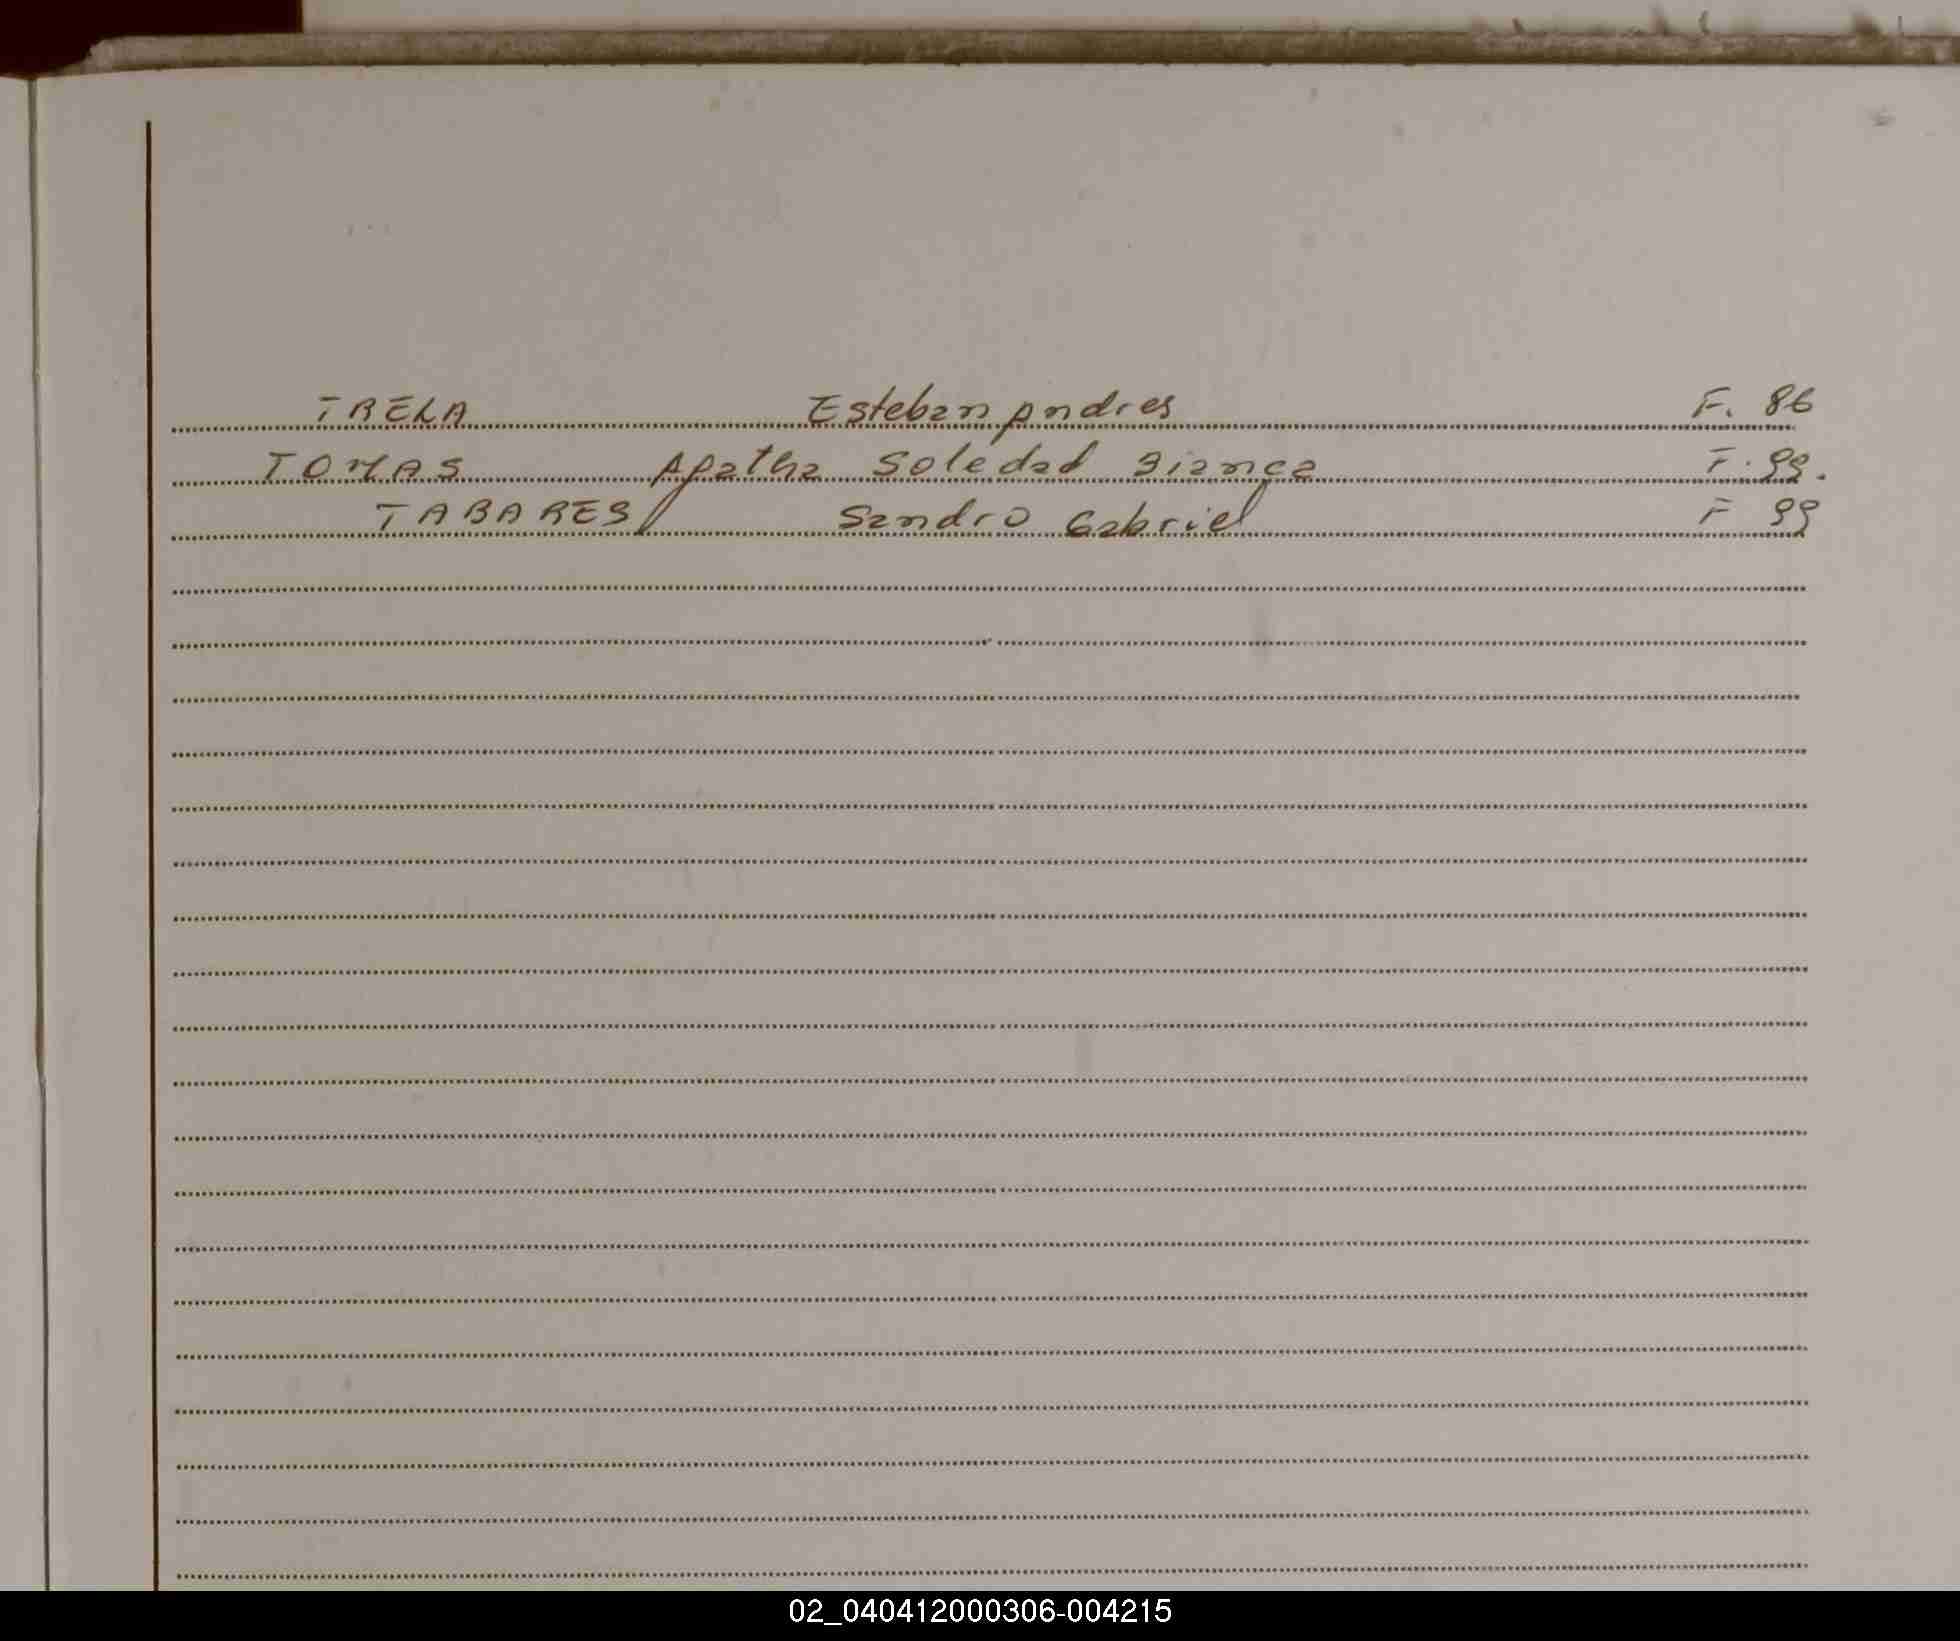 TRELA Esteban Andres F. 86
TOMAS Agatha Soledad Bianca F. 99.
TABARES Sandro Gabriel F 99
02_040412000306-004215